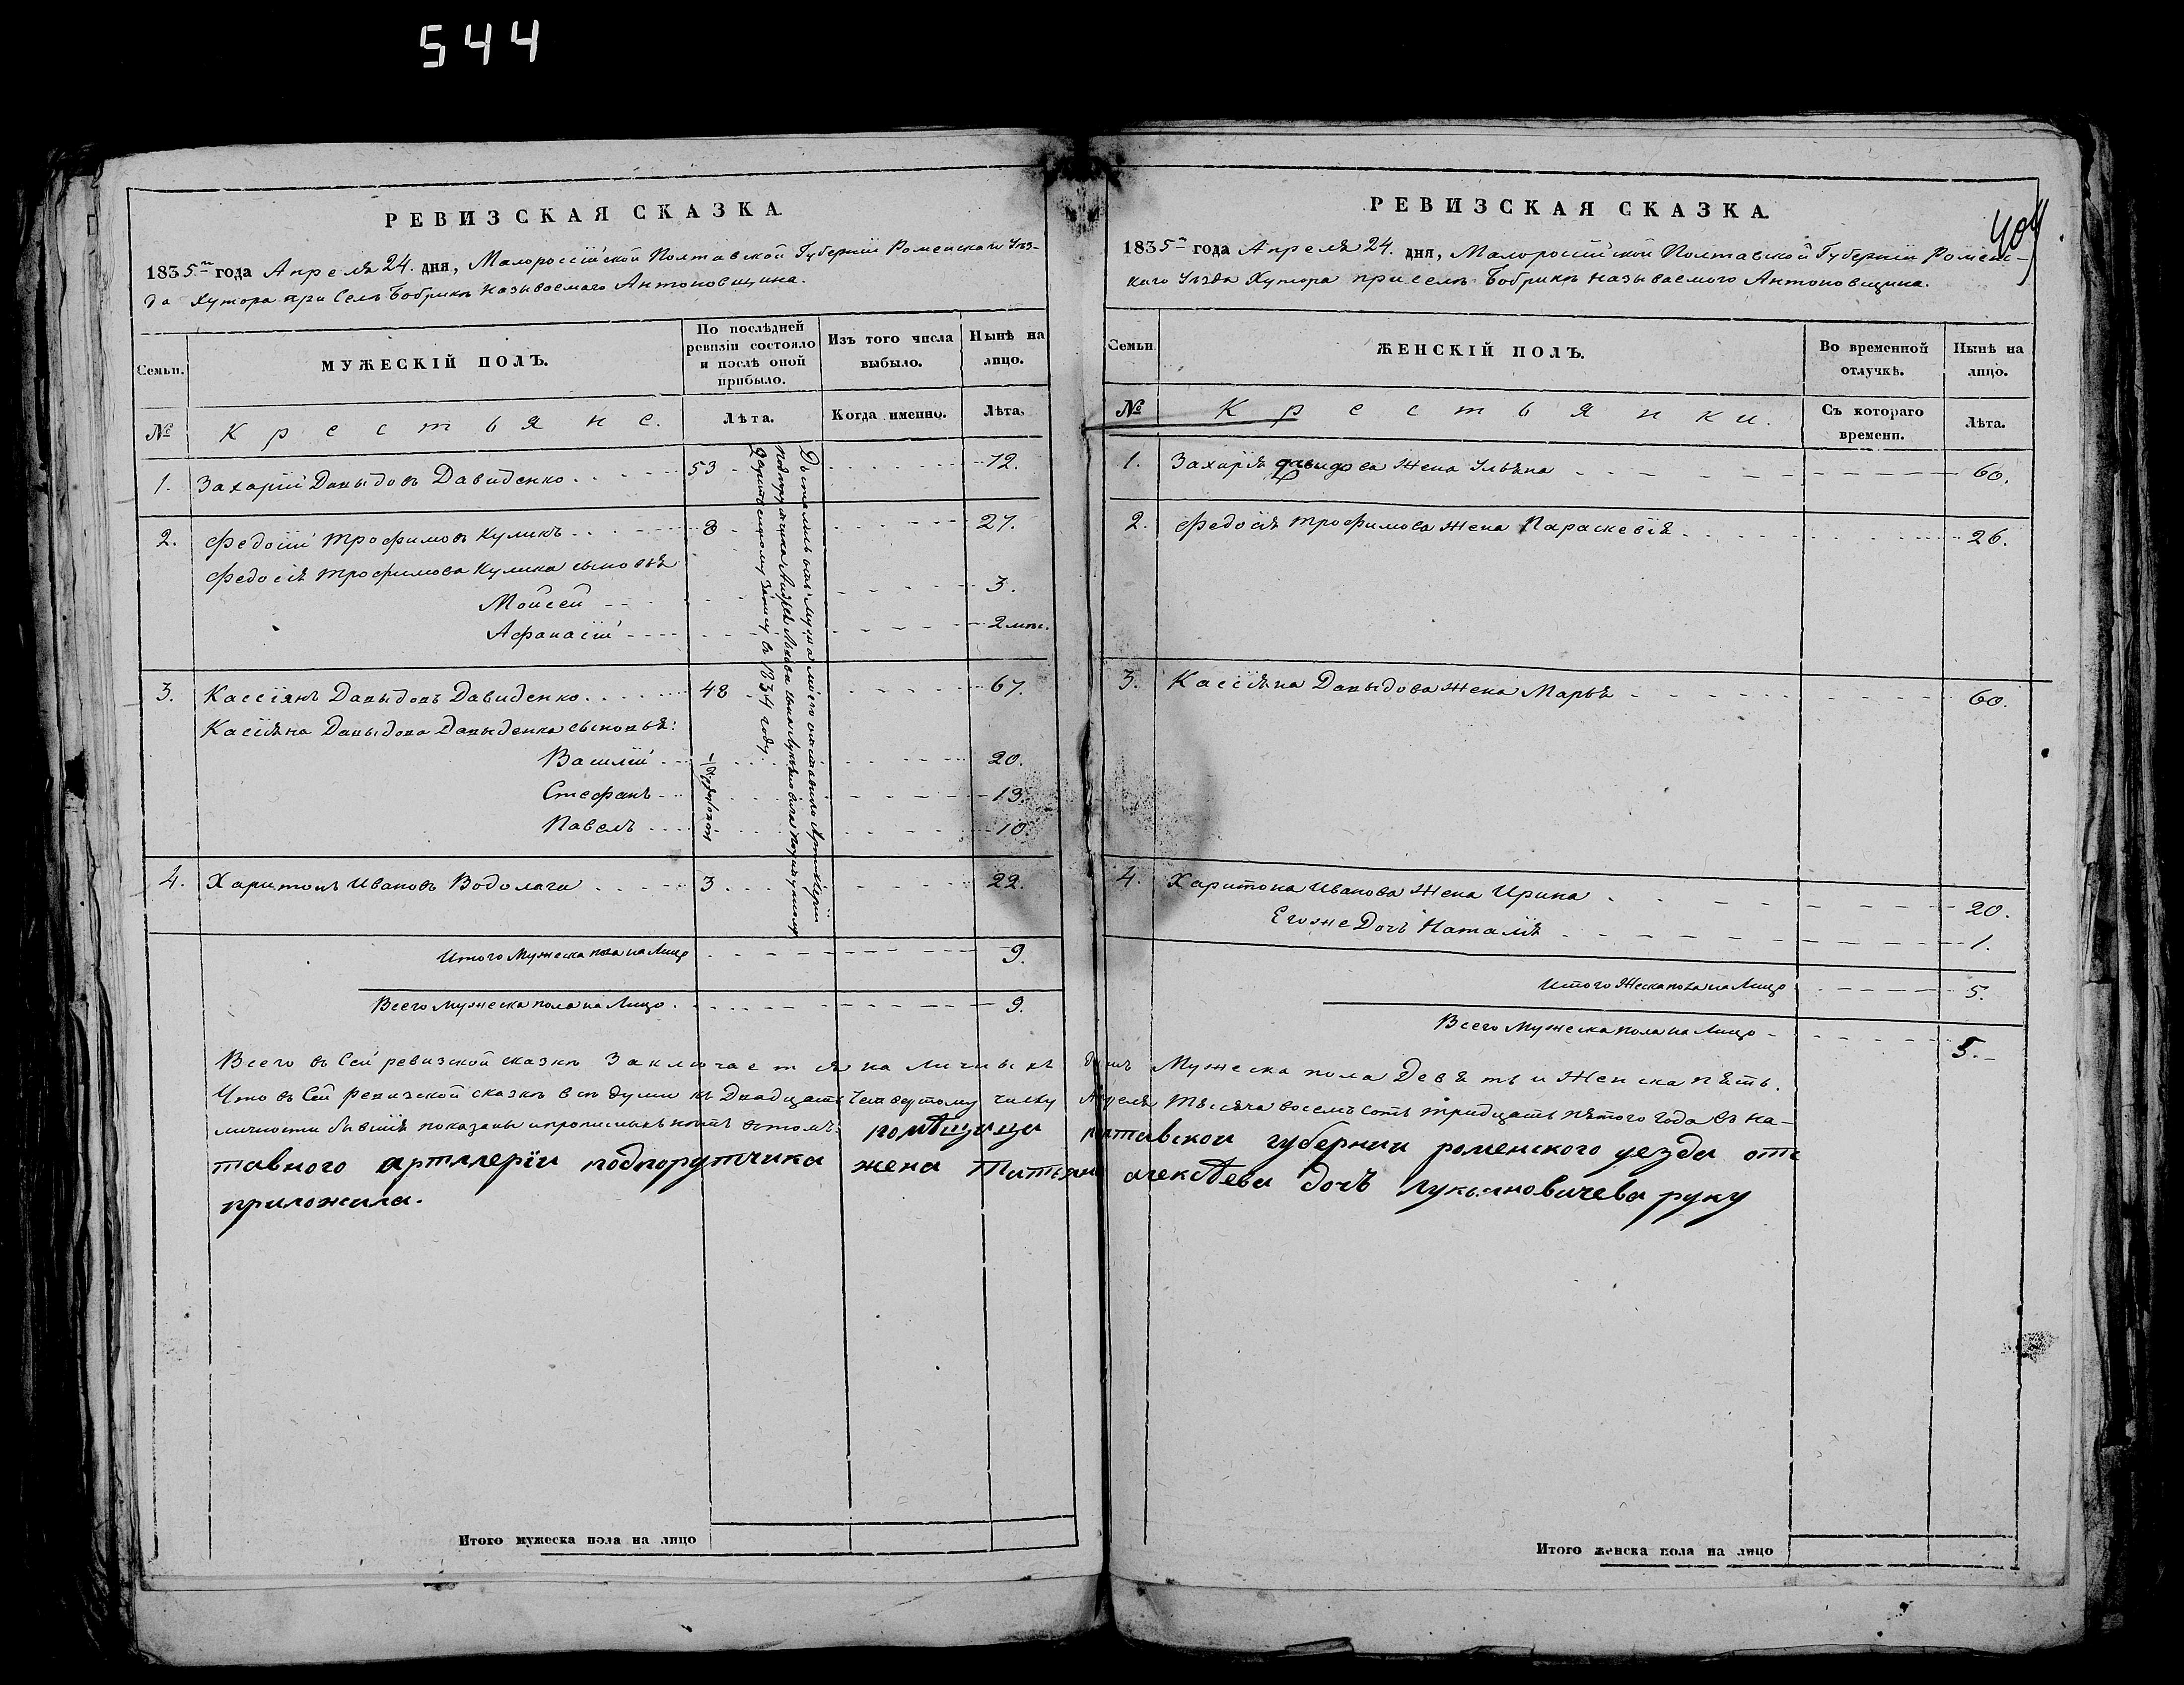 544
РЕВИЗСКАЯ СКАЗКА
1835го года Апреля 24. дня, Малороссійской Полтавской Губерніи Роменскаго Уѣз-
да Хутора при Селѣ Бобрикѣ называемаго Антоновщина.
Семьи.
МУЖЕСКІЙ ПОЛЪ.
По послѣдней ревизіи состояло и послѣ оной прибыло.
Изъ того числа выбыло.
Нынѣ на лицо.
№
Крестьяне.
Лѣта.
Когда именно.
Лѣта.
1. Захарій Давыдовъ Давиденко 53 72.
2. Федосій Трофимовъ Куликъ 8 27.
Федосія Трофимова Кулика сыновья
Мойсей 3.
Афанасій 2 мѣс.
3. Кассіянъ Давыдовъ Давиденко 48 67.
Кассіяна Давыдова Давыденка сыновья:
Василій 20.
Стефанъ 13.
Павелъ 10.
новорожден
4. Харитонъ Ивановъ Водолага 3 22.
отъ мужа моего
подпорутчика
въ 1834 году
Итого Мужеска пола на Лицо 9.
Всего Мужеска пола на Лицо 9.
РЕВИЗСКАЯ СКАЗКА
404
1835го года Апреля 24. дня, Малоросійской Полтавской Губерніи Роменс-
каго Уѣзда Хутора при селѣ Бобрикѣ называемого Антоновщина.
Семьи
ЖЕНСКІЙ ПОЛЪ.
Во временной отлучкѣ.
Нынѣ на лицо.
№
Крестьянки.
Съ котораго времени.
Лѣта.
1. Захарія Давидова Жена Ульяна 60.
2. Федосія Трофимова жена Параскевія 26.
3. Кассіяна Давыдова жена Марья 60.
4. Харитона Иванова Жена Ирина 20.
Его же Дочь Наталія 1.
Итого Жеска пола на Лицо 5.
Всего Мужеска пола на Лицо 5.
Всего въ Сей ревизской сказкѣ Заключается на личныхъ душъ Мужеска пола Девять и Женска пять.
Что въ Сей ревизской сказкѣ всѣ души къ Двадцать Четвертому числу Апреля Тысяча восемъ сотъ тридцать пятого года въ на-
личности бывшія показаны и прописныхъ нѣтъ въ томъ. помѣщица полтавской губернии роменского уезда отс
тавного артилерїи подпорутчика жена Татьяна алексѣева дочь лукьяновичева руку
приложила.
Итого мужеска пола на лицо
Итого женска пола на лицо